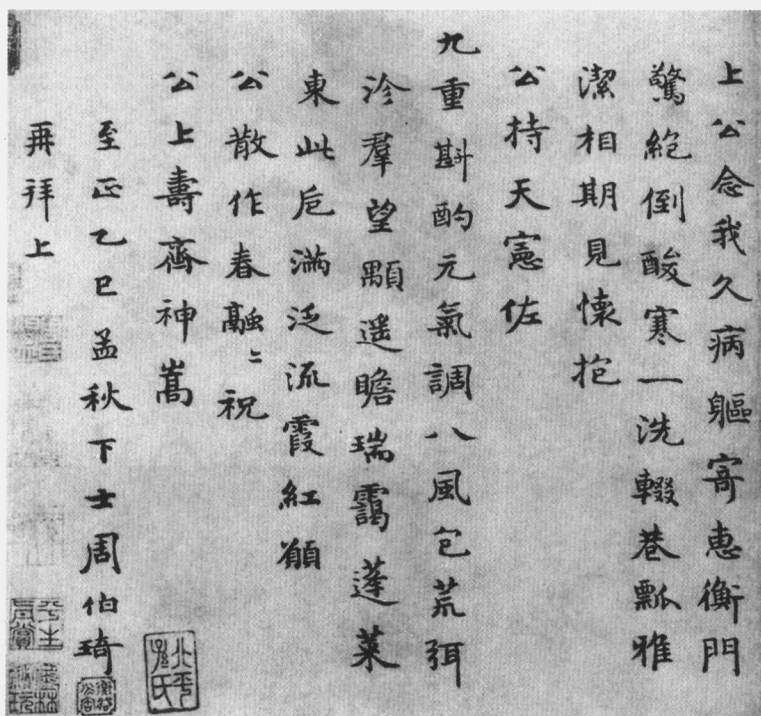 上公念我久病軀寄惠衡門
驚絶倒酸寒一洗輟巷瓢雅
潔相期見懷抱
公持天憲佐
九重斟酌元氣調八風包荒弭
沴羣望顒遥瞻瑞靄蓬萊
東此卮滿泛流霞紅願
公散作春融〻祝
公上壽齊神嵩
至正乙巳孟秋下士周伯琦
再拜上
北平孫氏